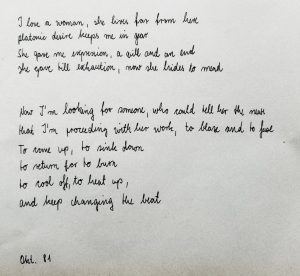 I love a woman, she lives far from here
platonic desire keeps me in gear
She gave me expression, a quill and an end
she gave till exhaution, now she hides to mend
Now I'm looking for someone, who could tell her the news
that I'm proceeding with her work, to blaze and to fuel
To come up, to sink down
to return for to burn
to cool off, to heat up,
and keep changing the beat
Okt. 81